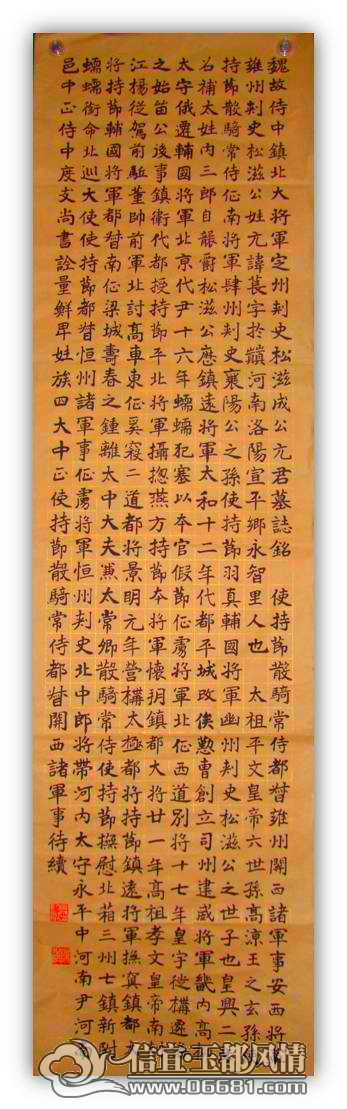 魏故侍中鎮北大將軍定州刺史松滋成公元君墓誌銘 使持節散騎常侍都督雍州關西諸軍事安西將
雍州刺史松滋公姓元諱萇字於巔河南洛陽宣平鄉永智里人也 太祖平文皇帝六世孫高涼王之玄孫
持節散騎常侍征南將軍肆州刺史襄陽公之孫使持節羽真輔國將軍幽州刺史松滋公之世子也皇興二
召補太姓內三郎自襲爵松滋公應鎮遠將軍太和十二年代都平城改俟懃曹創立司州建威將軍畿內高
太守俄遷輔國將軍北京代尹十六年蠕蠕犯塞以本官假節征虜將軍北征西道別將十七年皇宇徙構遷
之始留公後事鎮衛代都授持節平北將軍攝揔燕方持節本將軍懷朔鎮都大將廿一年高祖孝文皇帝南
江楊從駕前駈董帥前軍北討高車東征奚寇二道都將景明元年營構太極都將持節鎮遠將軍撫冥鎮都
將持節輔國將軍都督南征梁城壽春之鍾離太中大夫兼太常卿散騎常侍使持節撫慰北箱三州七鎮新附
蠕蠕銜命北巡大使使持節都督恒州諸軍事征虜將軍恒州刺史北中郎將帶河內太守永平中河南尹河
邑中正侍中度支尚書詮量鮮卑姓族四大中正使持節散騎常侍都督關西諸軍事待續
信宜·玉都风情
www.06681.com